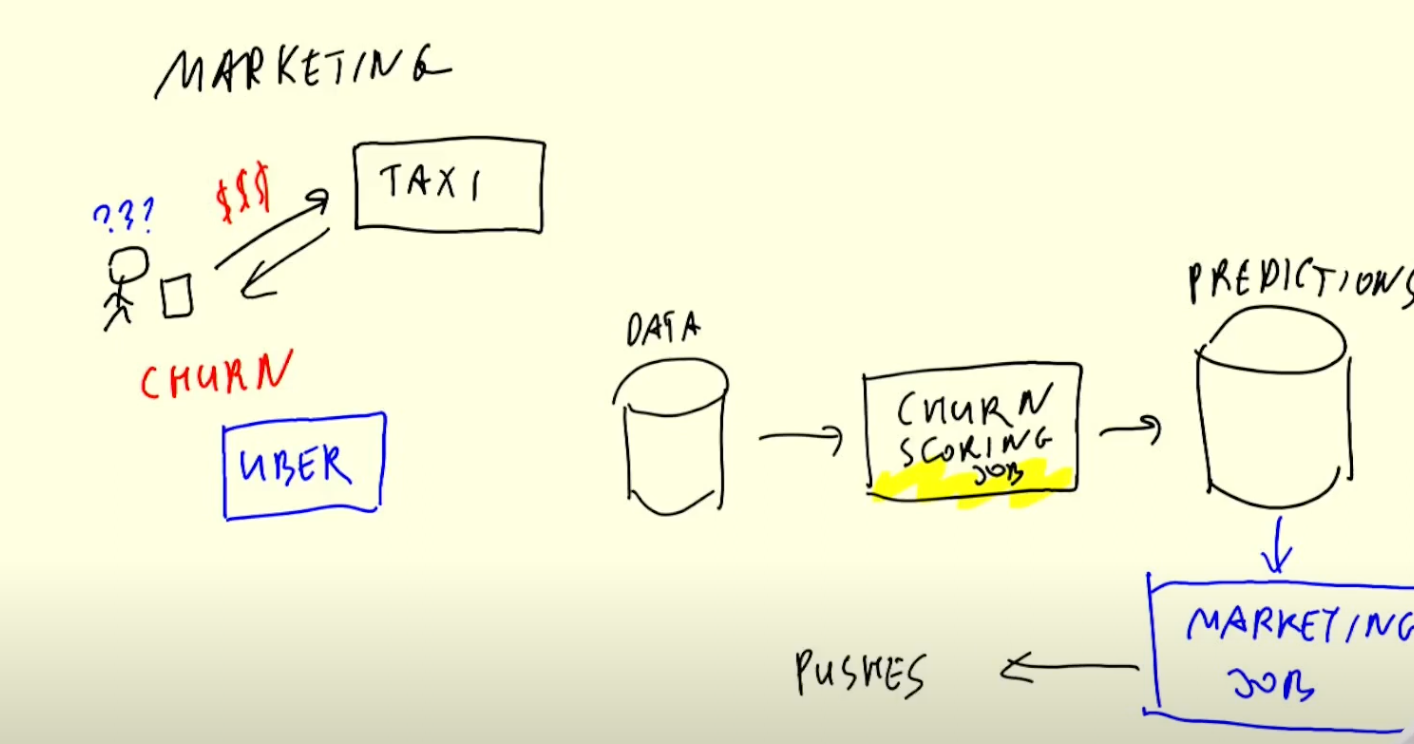 MARKETING
TAXI
$$$
???
CHURN
UBER
DATA
CHURN
SCORING
JOB
PREDICTIONS
MARKETING
JOB
PUSHES